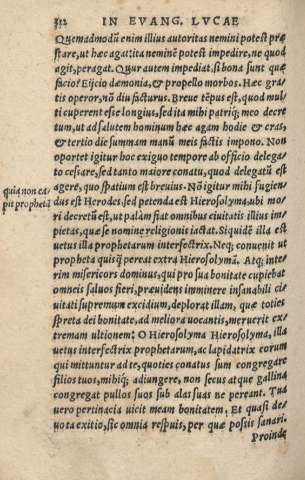 312 IN EVANG. LVCAE
Quemadmodū enim illius autoritas nemini potest præ
stare, ut hæc agat: ita neminē potest impedire, ne quod
agit, peragat. Quur autem impediat, si bona sunt quæ
facio? Eijcio dæmonia, & propello morbos. Hæc gra-
tis operor, nō diu facturus. Breue tēpus est, quod mul-
ti cuperent esse longius, sed ita mihi patriq; meo decre
tum, ut ad salutem hominum hæc agam hodie & cras,
& tertio die summam manū meis factis impono. Non
oportet igitur hoc exiguo tempore ab officio delega-
to cessare, sed tanto maiore conatu, quod delegatū est
agere, quo spatium est breuius. Nō igitur mihi fugien-
quia non ca-
pit prophetā
dus est Herodes, sed petenda est Hierosolyma, ubi mo-
ri decretū est, ut palàm fiat omnibus ciuitatis illius im
pietas, quæ se nomine religionis iactat. Siquidē illa est
uetus illa prophetarum interfectrix. Neq; conuenit ut
propheta quisq̃ pereat extra Hierosolymā. Atq; inte-
rim misericors dominus, qui pro sua bonitate cupiebat
omneis saluos fieri, præuidens imminere insanabili ci-
uitati supremum excidium, deplorat illam, quæ toties
spreta dei bonitate, ad meliora uocantis, meruerit ex-
tremam ultionem: O Hierosolyma Hierosolyma, illa
uetus interfectrix prophetarum, ac lapidatrix eorum
qui mittuntur ad te, quoties conatus sum congregare
filios tuos, mihiq; adiungere, non secus atque gallina
congregat pullos suos sub alas suas ne pereant. Tua
uero pertinacia uicit meam bonitatem. Et quasi de-
uota exitio, sic omnia respuis, per quæ possis sanari.
Proinde